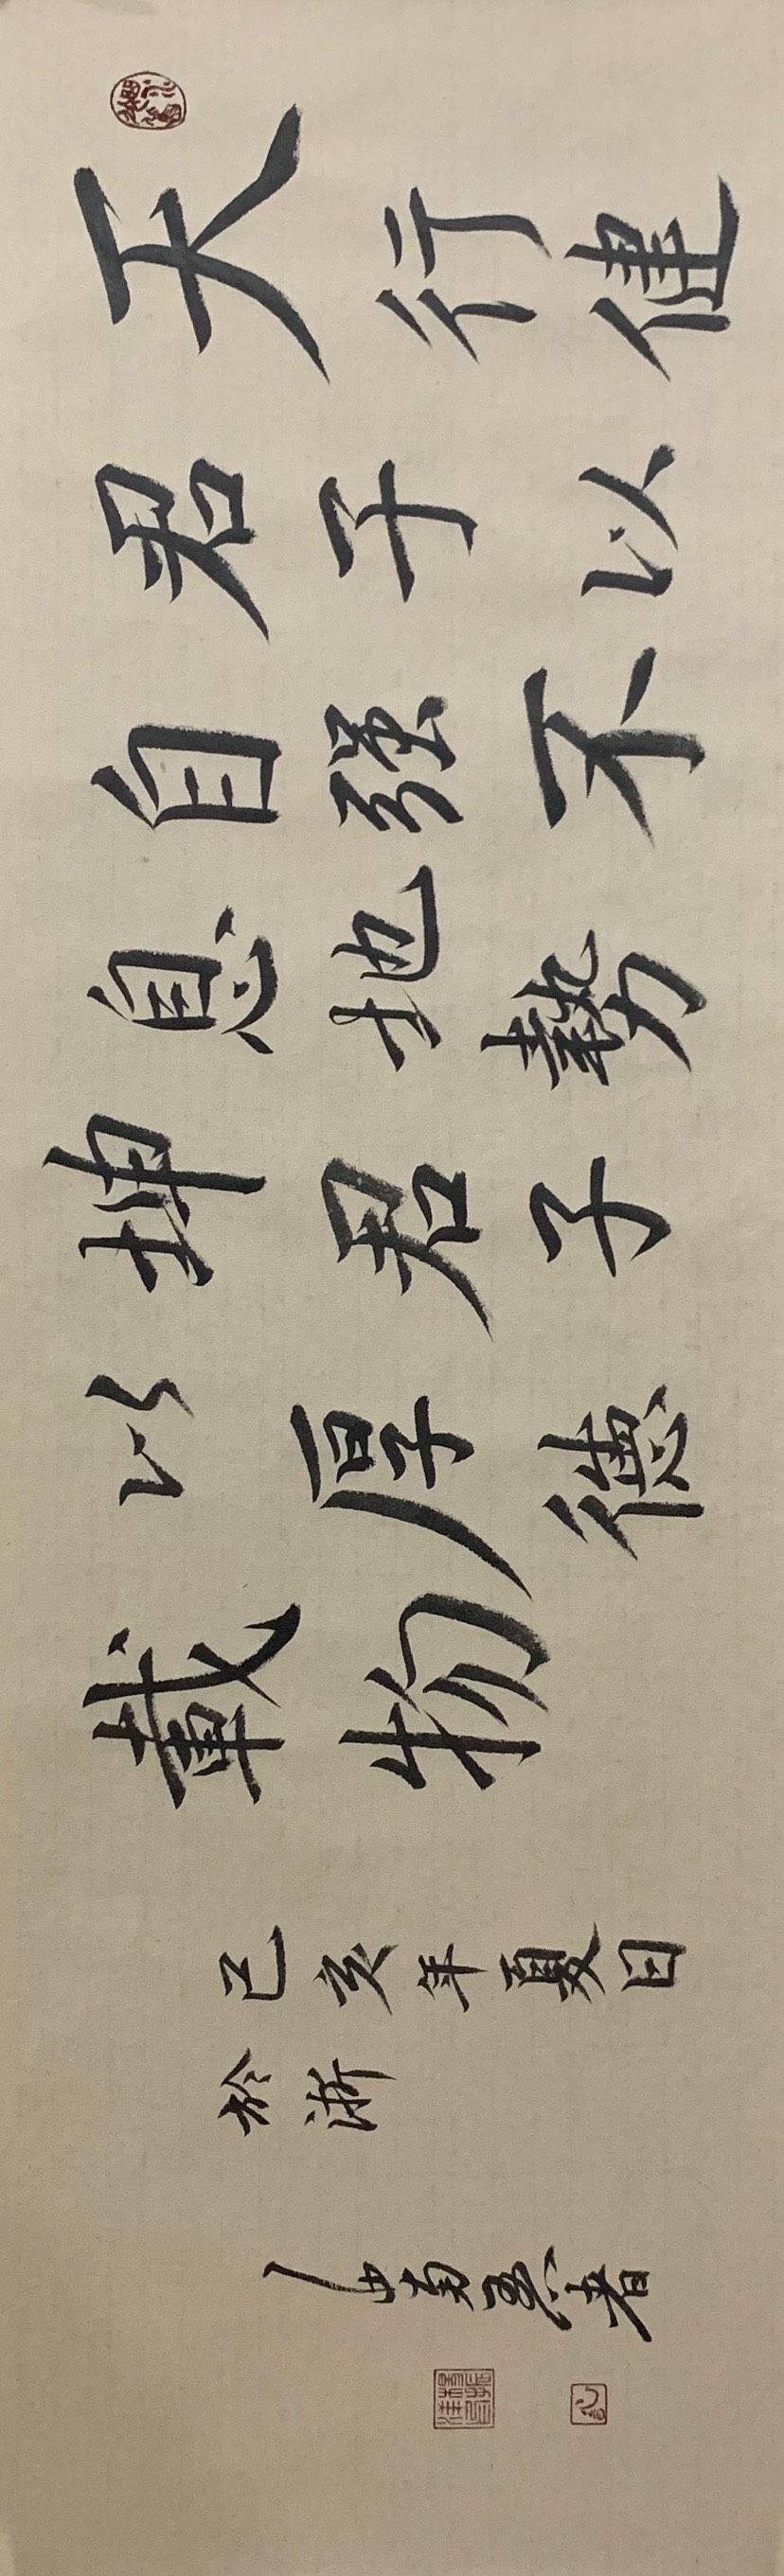 天行健
君子以
自強不
息地勢
坤君子
以厚德
載物
己亥年夏日
於浙